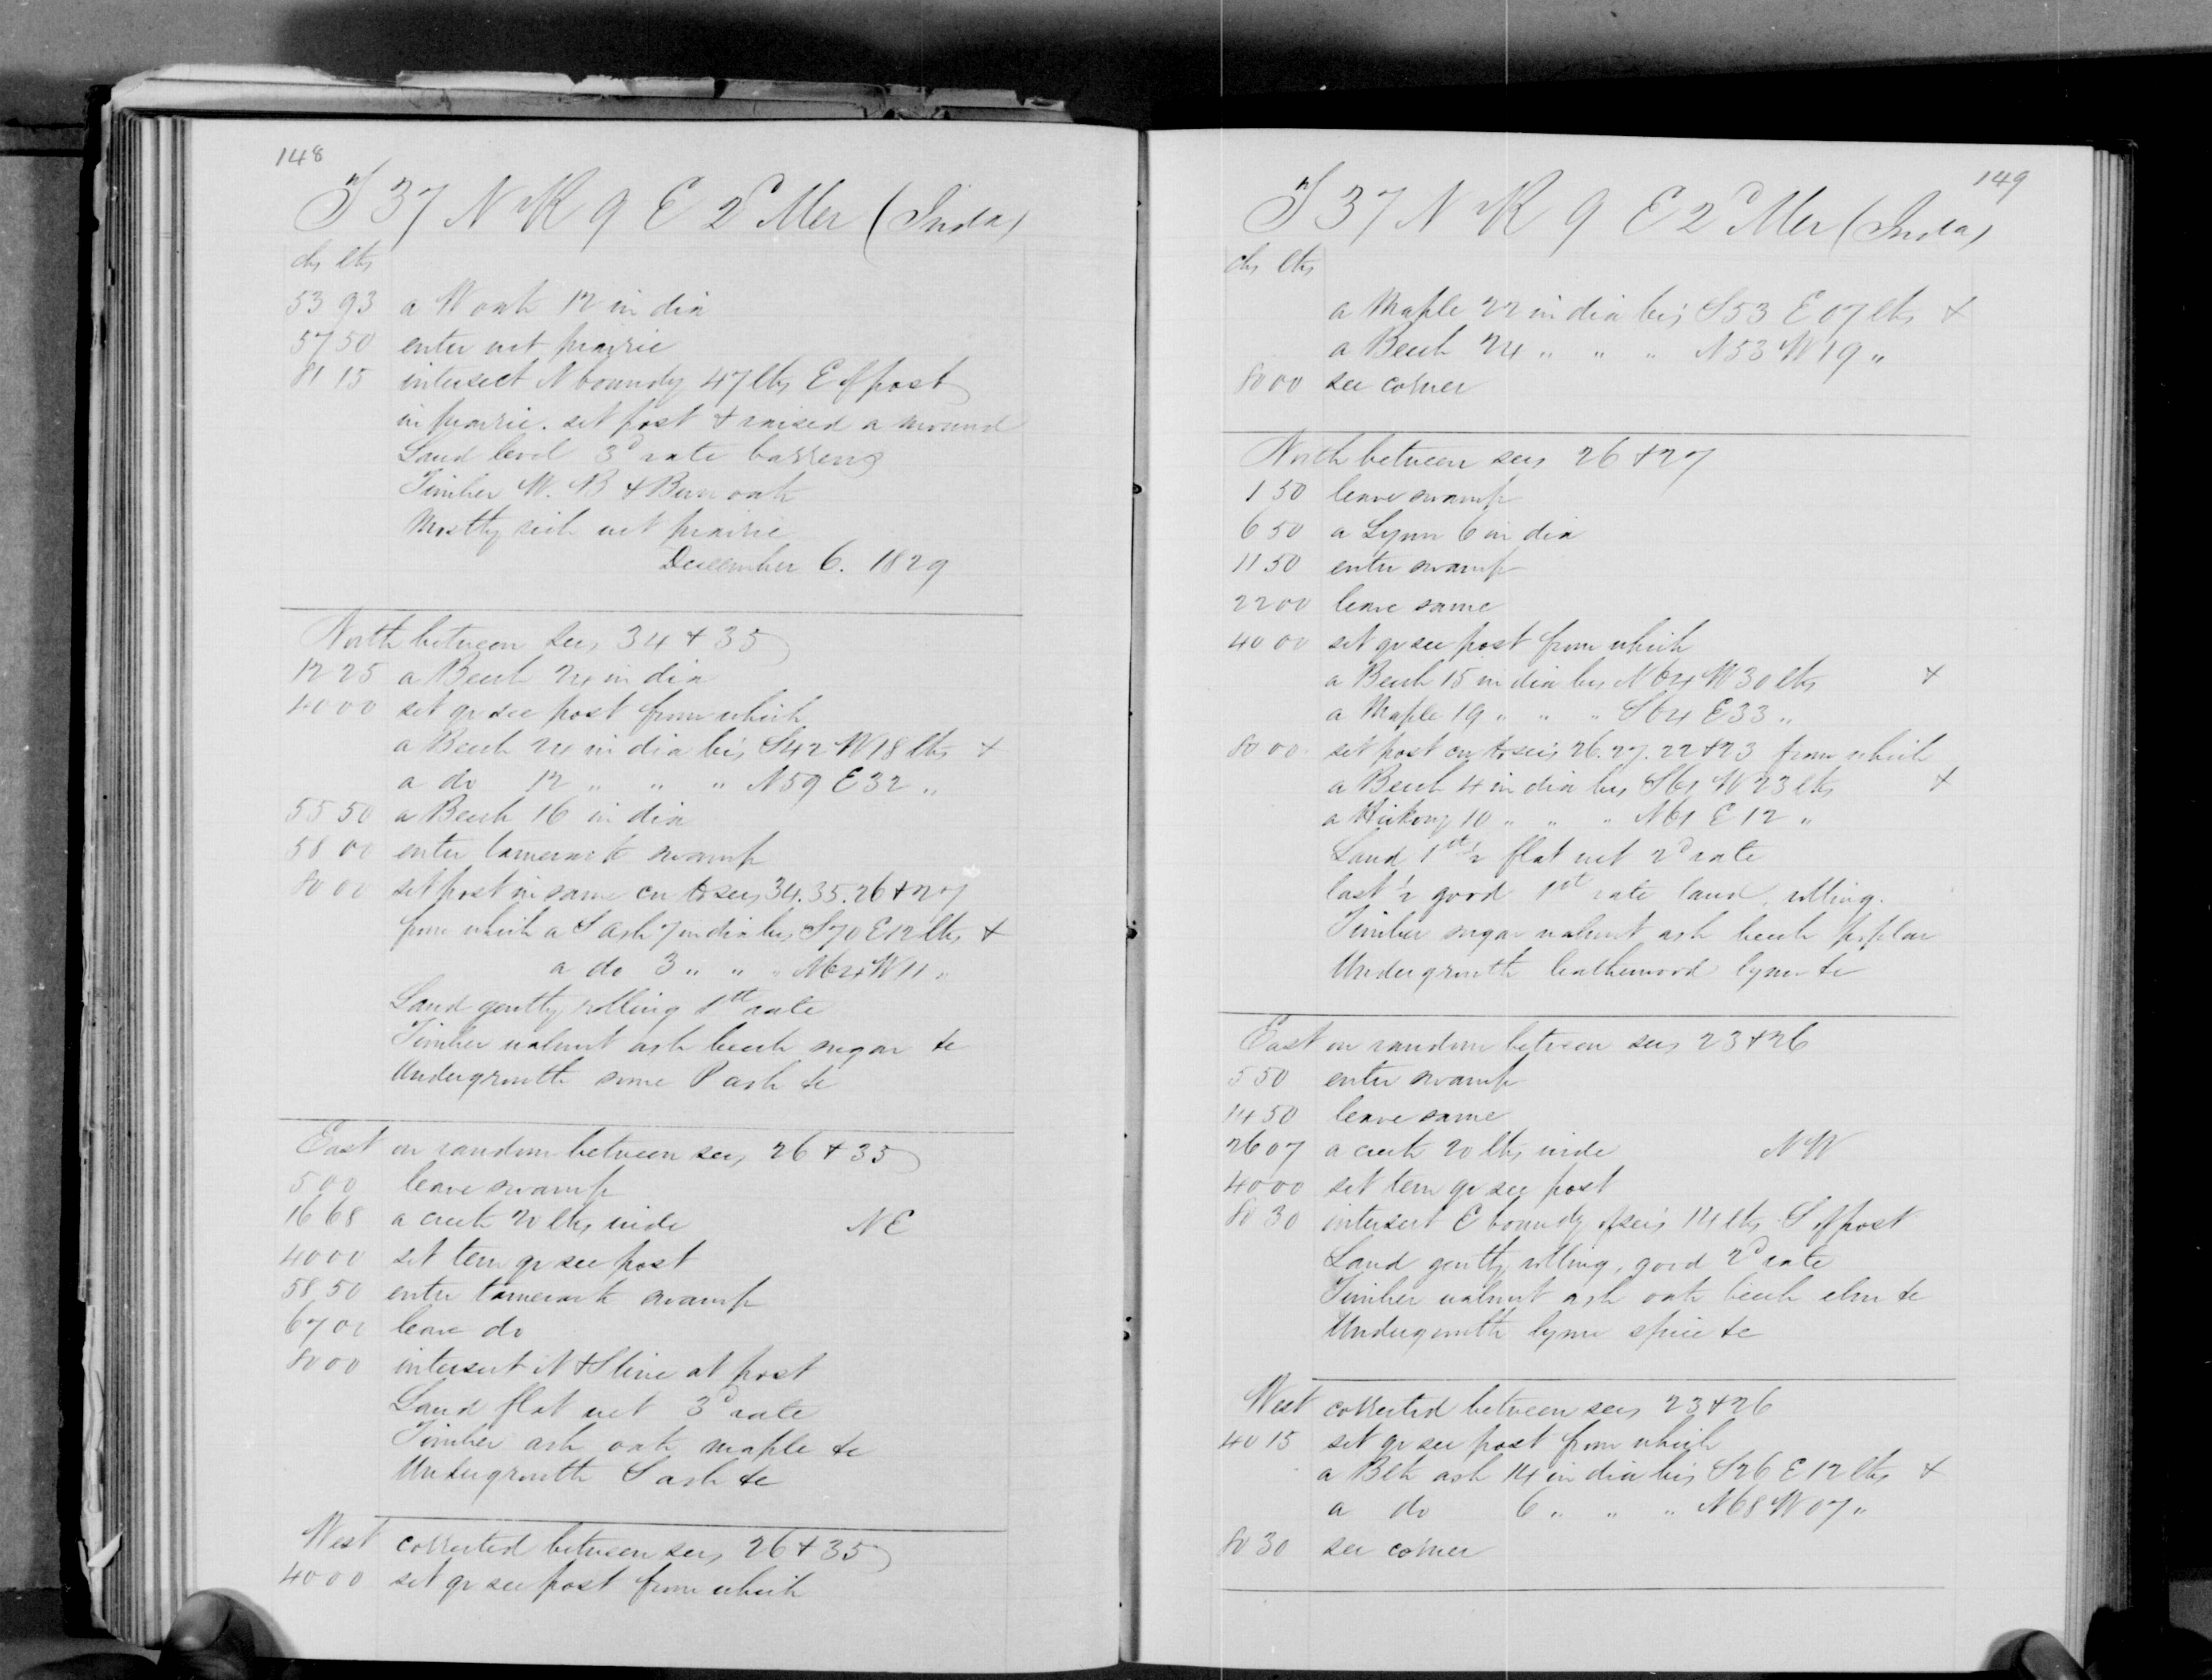 148
T 37 N R 9 E 2d Mer (Inda)
chs lks
53 93 a W oak 12 in dia
57 50 enter wet prairie
81 15 intersect N boundy 47 lks E of post
in prairie. set post & raised a mound
Land level 3d rate barrens
Timber W. B & Burr oak
Mostly rich wet prairie
December 6. 1829
North between secs 34 & 35
12 25 a Beech 24 in dia
40 00 set qr sec post from which
a Beech 24 in dia brs S42 W18 lks +
a do 12 " " " N59 E32 "
55 50 a Beech 16 in dia
58 00 enter tamerack swamp
80 00 set post in same cor to secs 34. 35. 26 & 27
from which a S ash 7 in dia brs S70 E12 lks +
a do 3 " " " N64 W11 "
Land gently rolling 1st rate
Timber walnut ash beech sugar &c
Undergrowth same P ash &c
East on random between secs 26 & 35
5 00 leave swamp
16 68 a creek 20 lks wide NE
40 00 set tem qr sec post
58 50 enter tamerack swamp
67 00 leave do
80 00 intersect N & S line at post
Land flat wet 3d rate
Timber ash oak maple &c
Undergrowth S ash &c
West corrected between secs 26 & 35
40 00 set qr sec post from which
149
T 37 N R 9 E 2d Mer (Inda)
chs lks
a Maple 22 in dia brs S53 E 07 lks +
a Beech 24 " " " N53 W19 "
80 00 sec corner
North between secs 26 & 27
1 50 leave swamp
6 50 a Lynn 6 in dia
11 50 enter swamp
22 00 leave same
40 00 set qr sec post from which
a Beech 15 in dia brs N64 W30 lks +
a Maple 19 " " " S64 E33 "
80 00 set post cor to secs 26. 27. 22 & 23 from which
a Beech 4 in dia brs S61 W23 lks +
a Hickory 10 " " " N61 E12 "
Land 1st 1/2 flat wet 2d rate
last 1/2 good 1st rate land, rolling.
Timber sugar walnut ash beech poplar
Undergrowth leatherwood lynn &c
East on random between secs 23 & 26
5 50 enter swamp
14 50 leave same
26 07 a creek 20 lks wide NW
40 00 set tem qr sec post
80 30 intersect E boundy of secs 14 lks S of post
Land gently rolling, good 2d rate
Timber walnut ash oak beech elm &c
Undergrowth lynn spice &c
West corrected between secs 23 & 26
40 15 set qr sec post from which
a Blk ash 14 in dia brs S26 E12 lks +
a do 6 " " " N68 W07 "
80 30 sec corner